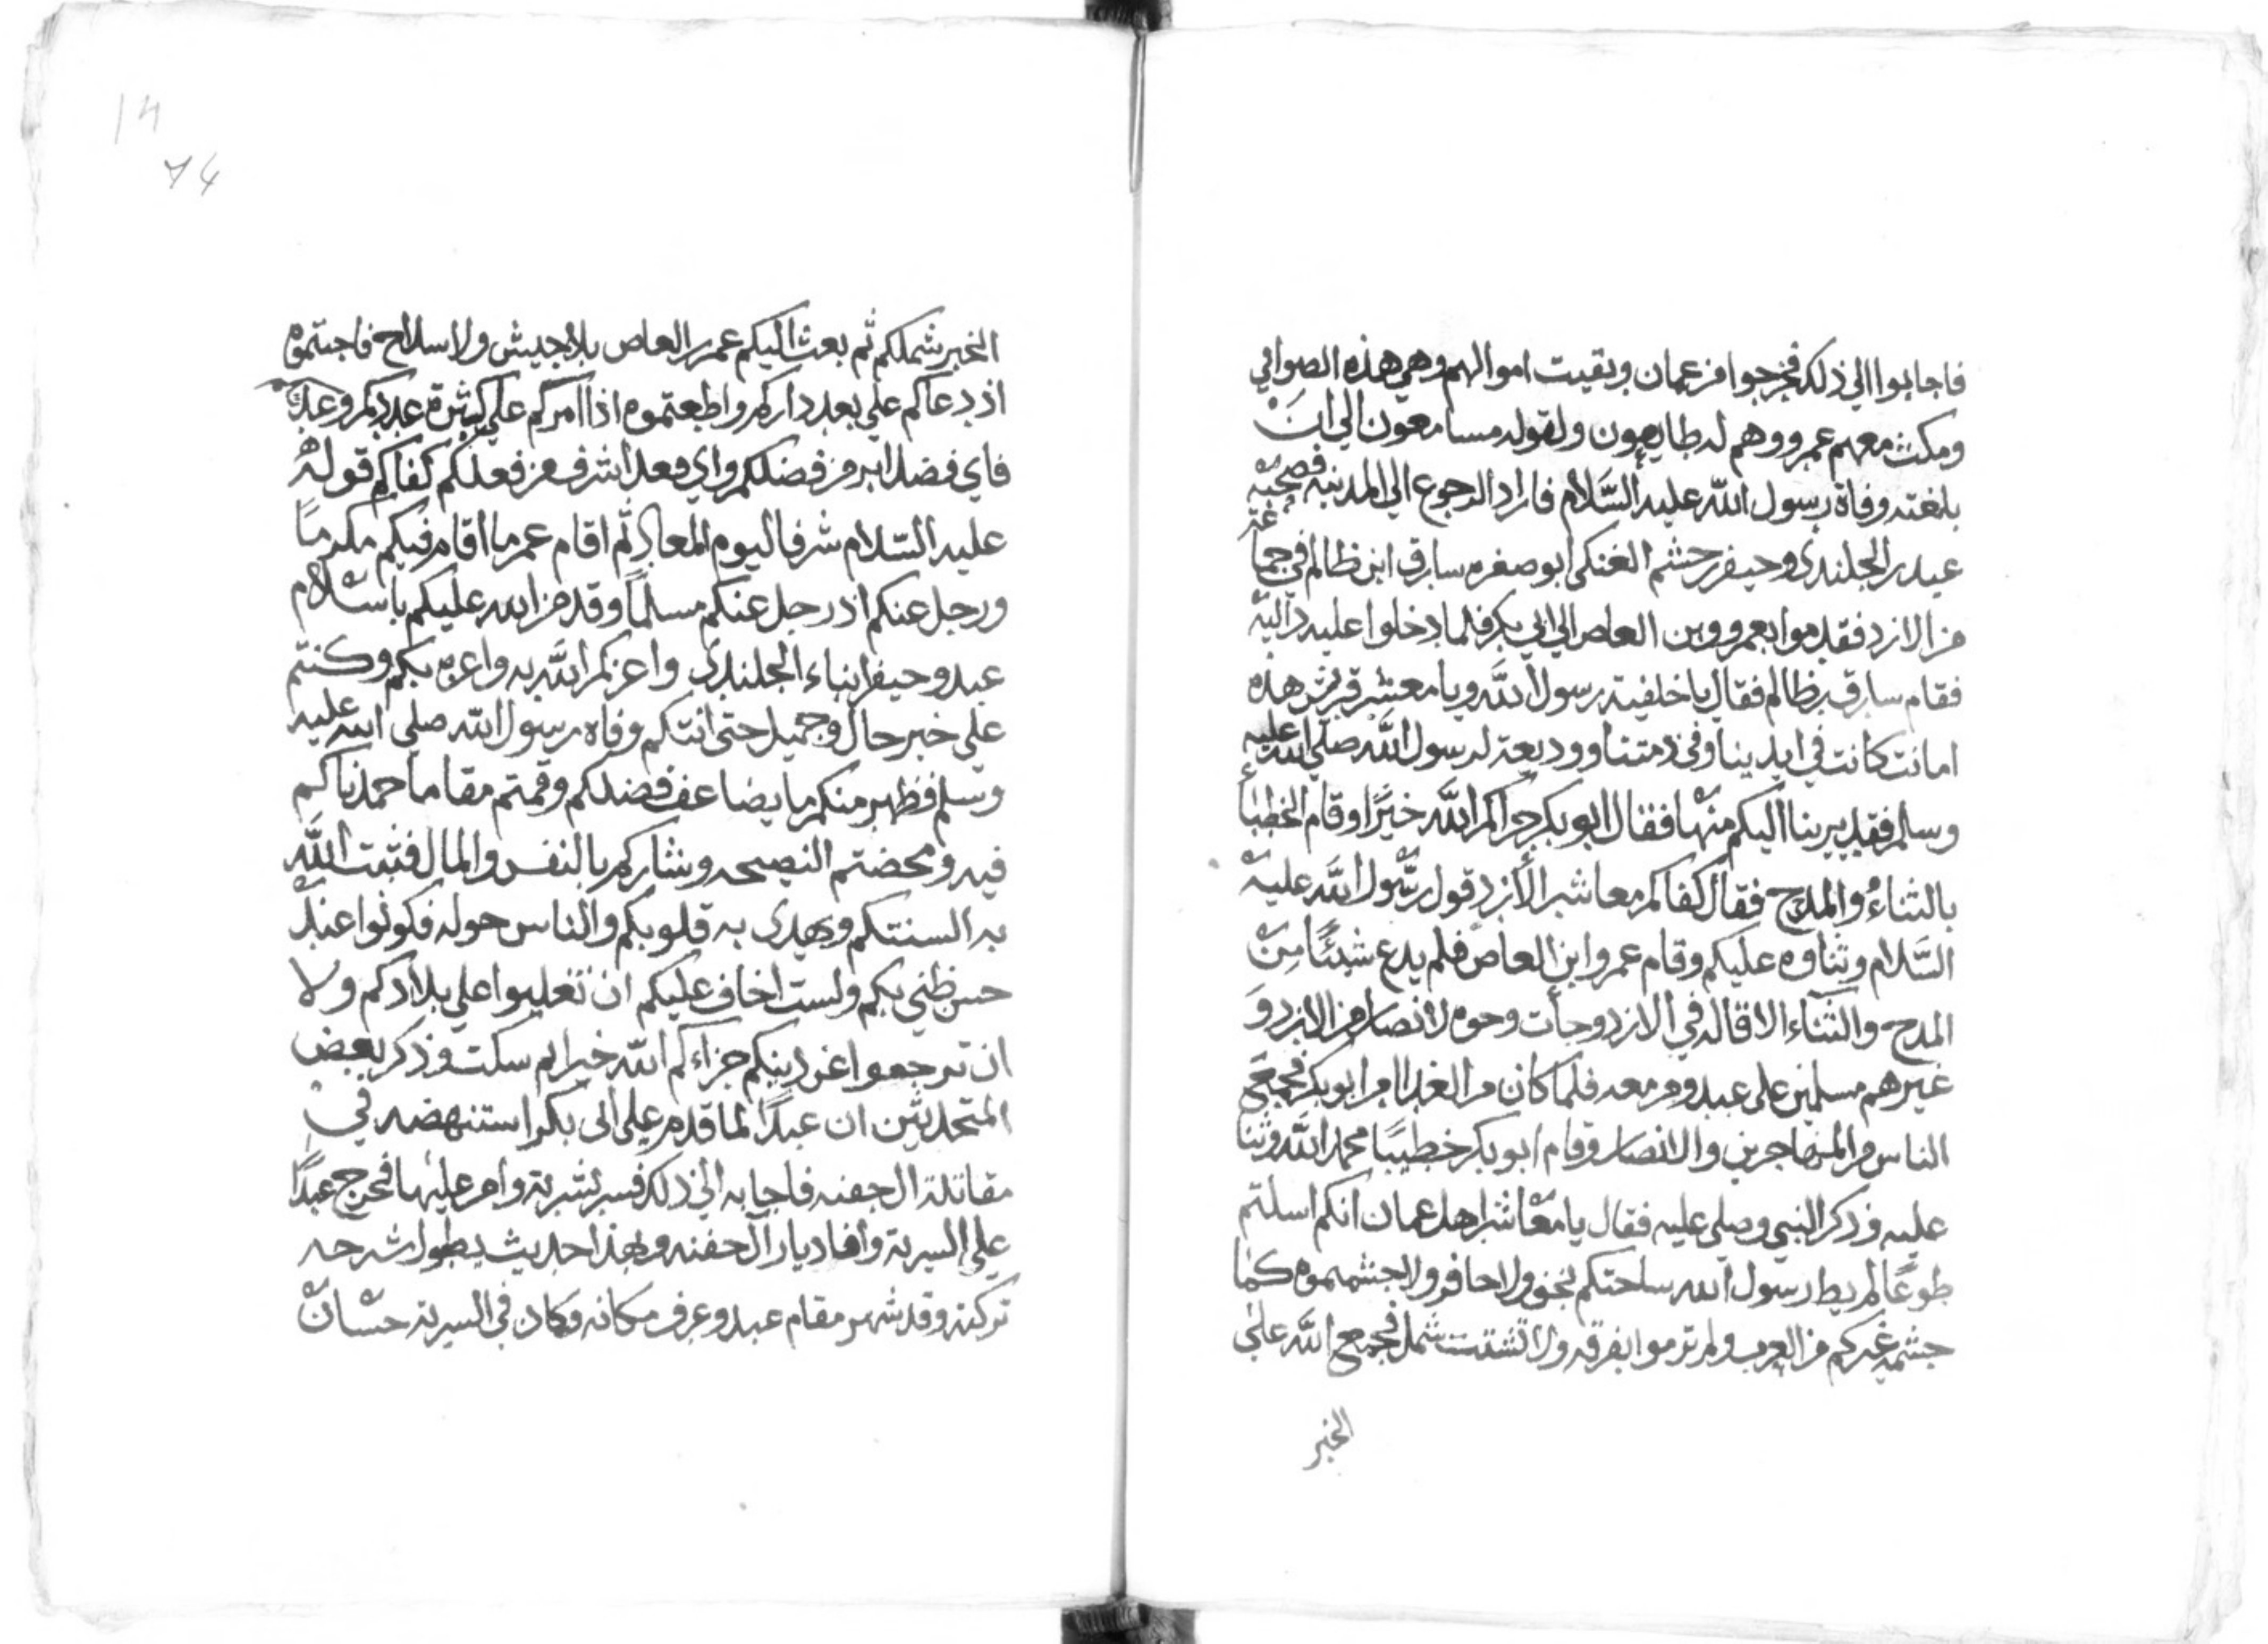 فاجابوا الي ذلك فخرجوا من عمان وبقيت اموالهم وهي هذه الصوافي
ومكث معهم عمرو وهم له طايعون ولقوله مسامعون الي ان
بلغته وفاة رسول الله عليه السَّلام فاراد الرجوع الي المدينه فصحبه
عبد بن الجلندي وحيفر بن حشم العتكي ابو صفره سارق ابن ظالم في جماعة
من الازد فقدموا بعمرو وبن العاص الي ابي بكر فلما دخلوا عليه
فقام سارق بن ظالم فقال يا خليفة رسول الله ويا معشر قريش هذه
امانت كانت في ايدينا وفي ذمتنا ووديعة لرسول الله صلي الله عليه
وسلم فقد برينا اليكم منها فقال ابو بكر جزاكم الله خيرًا وقام الخطباء
بالثناءُ والمدح فقال كفاكم معاشر الأزد قول رسُول الله عليه
السَّلام وثناوه عليكم وقام عمروا ابن العاص فلم يدع شيئًا مِن
المدح والثناء الا قاله في الازد وجأت وجوه الانصار من الازد وَ
غيرهم مسلمين على عبد ومن معه فلما كان من الغد امر ابو بكر فجمع
الناس من المهاجرين والانصار وقام ابو بكر خطيبًا محمد الله وثنا
عليه وذكر النبي وصلي عليه فقال يا معاشر اهل عمان انكم اسلتم
طوعًا لم يط رسول الله ساحتكم بخف ولا حافر ولا جشمتموه كما
جشمه غيركم من العرب ولم ترموا بفرقه ولا تشتت شمل فجمع الله علي
الخير
14
74
الخير شملكم ثم بعث اليكم عمر بن العاص بلا جيش ولا سلاح فاجبتموه
اذ دعاكم علي بعد داركم واطعتموه اذا امركم علي كثرة عددكم وعدتكم
فاي فضل ابر من فضلكم واي فعل اشرف من فعلكم كفاكم قوله
عليه السّلام شرفا ليوم المعاد ثم اقام عمر ما اقام فيكم مكرمًا
ورحل عنكم اذ رحل عنكم مسلمًا وقد من الله عليكم باسلام
عبد وحيفر ابناء الجلندي واعزكم الله به واعزه بكم وكنتم
علي خير حال وجميل حتى اتتكم وفاه رسول الله صلي الله عليه
وسلم فظهر منكم ما يضاعف فضلكم وقمتم مقاما حمدناكم
فيه ومحضتم النصيحه وشاركتم بالنفس والمال فثبت الله
به السنتكم ويهدي به قلوبكم والناس جوله فكونوا عند
حسن ظني بكم ولست اخاف عليكم ان تغلبوا علي بلادكم ولا
ان ترجعوا عن دينكم جزاءكم الله خيرا ثم سكت وذكر بعض
المتحدثين ان عبدًا لما قدم علي ابي بكر استنهضه في
مقاتلة ال جفنه فاجابه الي ذلك فسر بسرية وامر عليها فخرج عبدًا
علي السرية وافا ديار آل جفنه ولهذا حديث يطول شرحه
تركته وقد شهر مقام عبد وعرف مكانه وكان في السرية حسّان